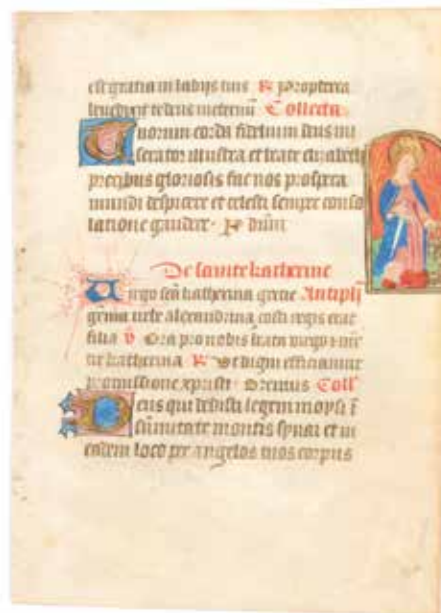 est gratia in labijs tuis R propterea
benedixit te deus in eternū Collecta
Tuorum corda fidelium deus mi
serator illustra et beate elizabeth
precibus gloriosis fac nos prospera
mundi despicere et celesti semper conso
latione gaudere. P dñm
De sainte katherine
Virgo scā katherina grecie Antiph
gēma urbe alexandrina costi regis erat
filia V Ora pro nobis beata virgo & mr
tir katherina R Ut digni efficiamur
promissione xpristi Oremus Coll
Deus qui dedisti legem moysi ī
sūmitate montis synai et in
eadem loco per angelos tuos corpus